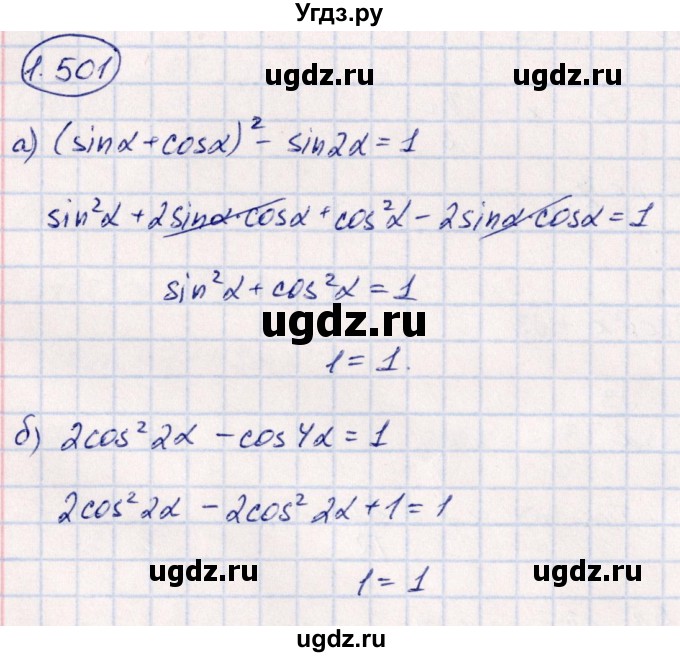 Угдз.ру
1.501
ugdz.ru ugdz.ru
а) (sinα + cosα)² - sin2α = 1
sin²α + 2sinα cosα + cos²α - 2sinα cosα = 1
sin²α + cos²α = 1
ugdz.ru
1 = 1.
б) 2cos² 2α - cos4α = 1
2cos² 2α - 2cos² 2α + 1 = 1
ugdz.ru ugdz.ru
1 = 1
ugdz.ru